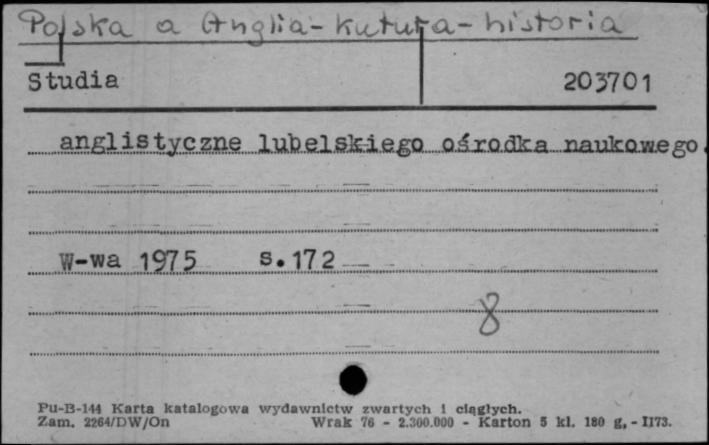 Polska a Anglia-kutura-historia
Studia 203701
anglistyczne lubelskiego ośrodka naukowego.
W-wa 1975 s.172
8
Pu-B-144 Karta katalogowa wydawnictw zwartych i ciągłych.
Zam. 2264/DW/On Wrak 76 - 2.300.000 - Karton 5 kl. 180 g, - II73.